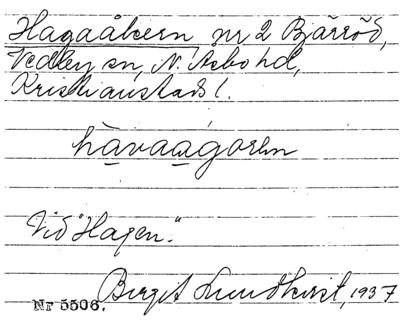 Hagaåkern nr 2 Bjärröd,
Vedby sn, N. Åsbo hd,
Kristianstads l.
havaagoren
Vid "Hagen".
Birgit Lundkvist, 1937
Nr 5506.